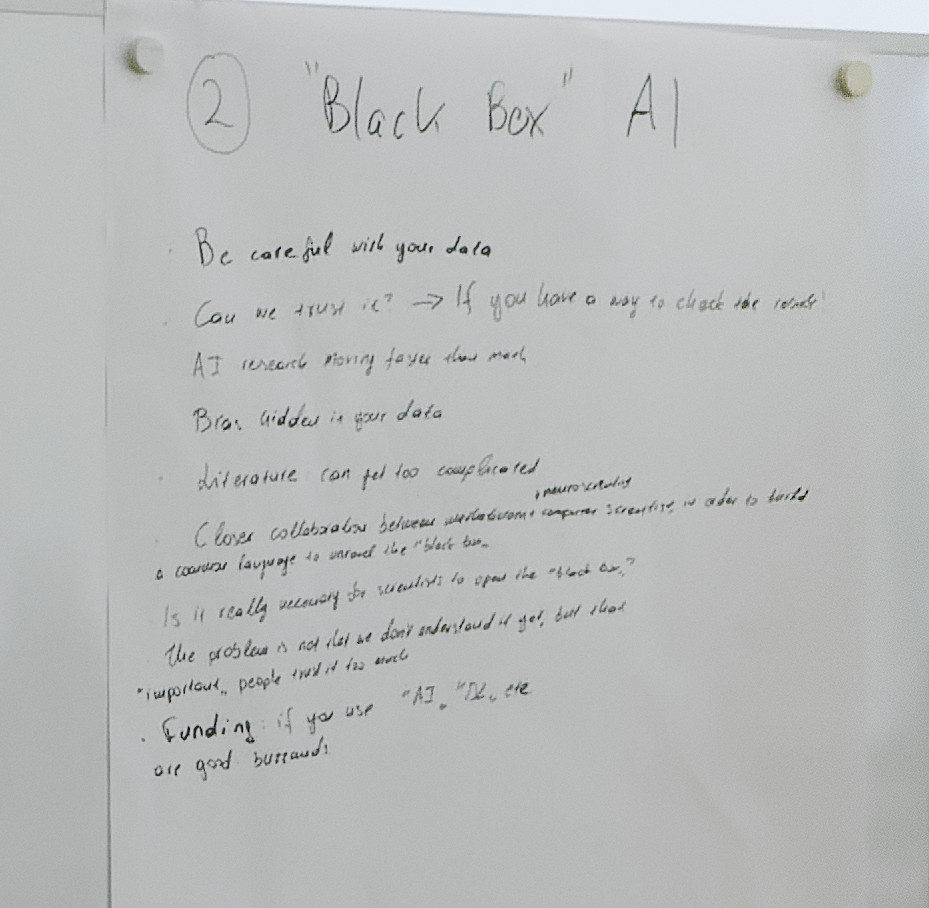 ② "Black Box" AI
· Be careful with your data
· Can we trust it? → If you have a way to check the results
AI research moving faster than
Bias hidden in your data
· Literature can get too complicated
, neuroscientist
· Closer collaboration between computer scientist, in order to build
a common language to unravel the "black box„
Is it really necessary for scientists to open the "black box„?
· The problem is not that we don't understand it yet, but that
"important„ people trust it too much
· Funding: if you use "AI„ "DL„ etc
are good